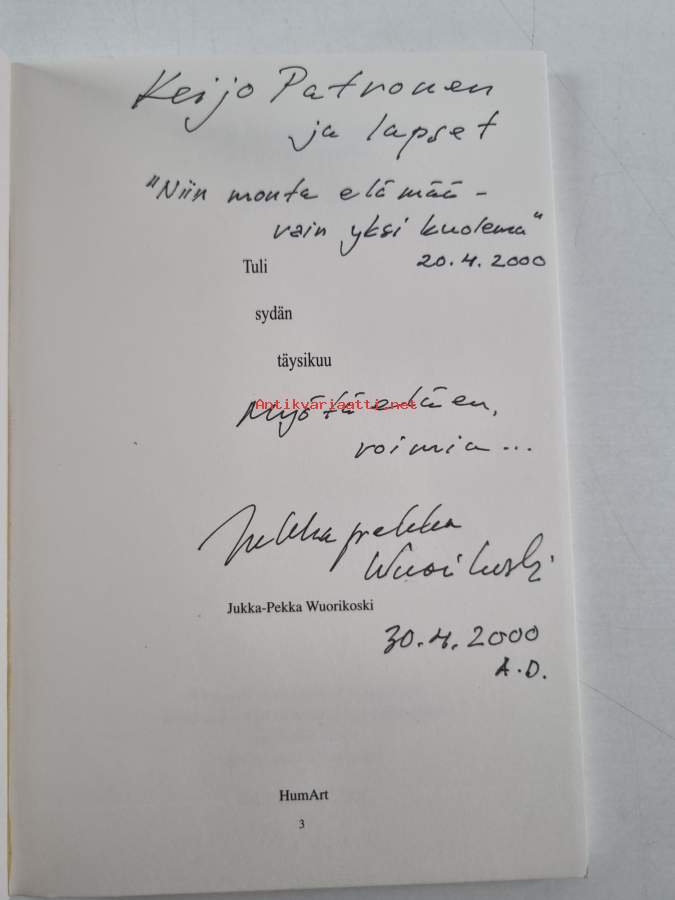 Keijo Patronen
ja lapset
"Niin monta elämää –
vain yksi kuolema"
20.4.2000
Tuli
sydän
täysikuu
Antikvariaatti.net
Myötäeläen,
voimia...
Jukka pekka
Wuorikoski
Jukka-Pekka Wuorikoski
30.4.2000
A.D.
HumArt
3